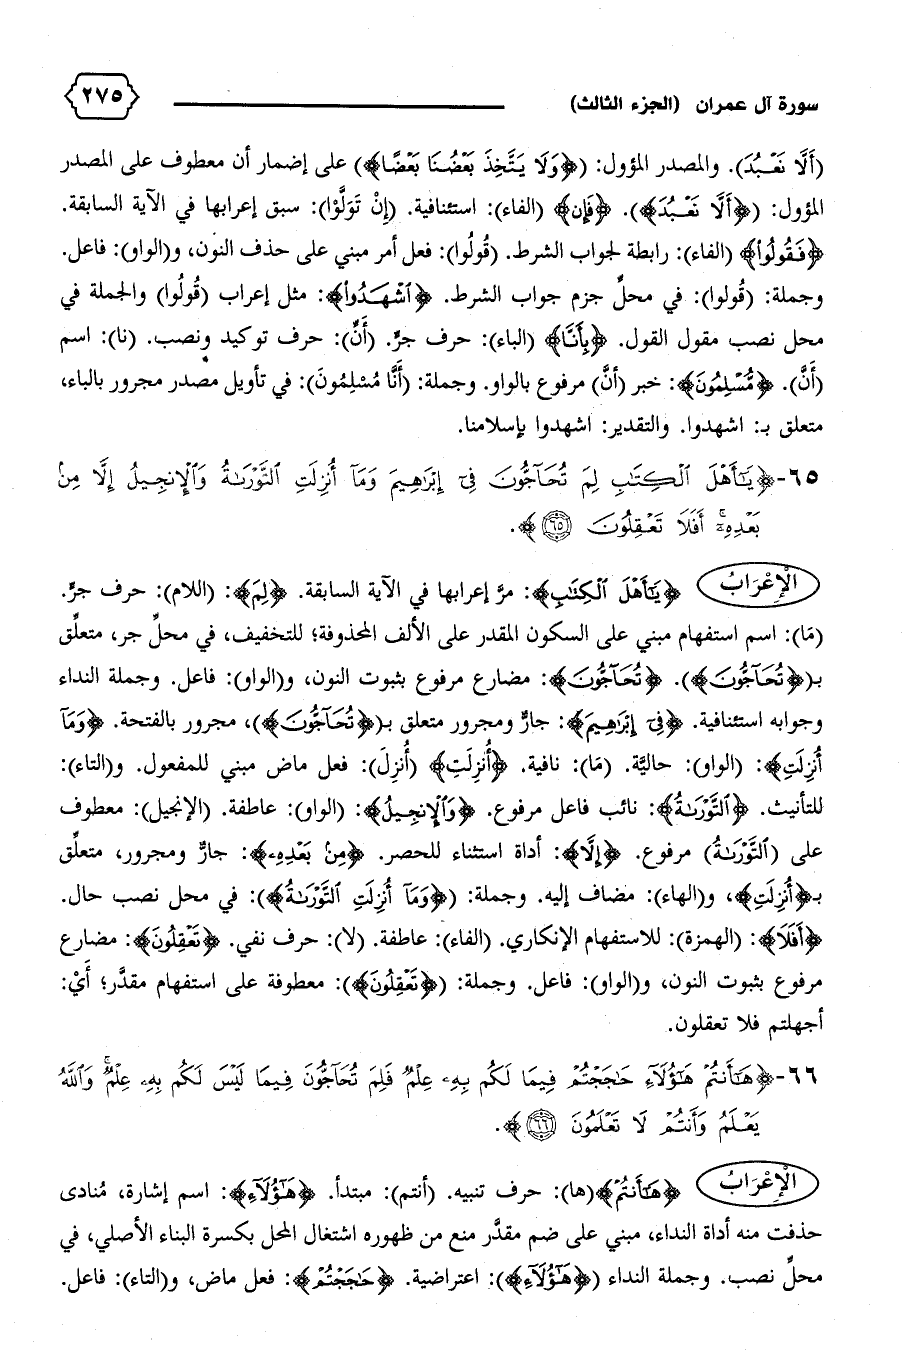 سورة آل عمران (الجزء الثالث)
٢٧٥
(أَلَّا نَعْبُدَ). والمصدر المؤول: (﴿وَلَا يَتَّخِذَ بَعْضُنَا بَعْضًا﴾) على إضمار أن معطوف على المصدر
المؤول: (﴿أَلَّا نَعْبُدَ﴾). ﴿فَإِن﴾ (الفاء): استئنافية. (إِنْ تَوَلَّوْا): سبق إعرابها في الآية السابقة.
﴿فَقُولُوا۟﴾ (الفاء): رابطة لجواب الشرط. (قُولُوا): فعل أمر مبني على حذف النون، و(الواو): فاعل.
وجملة: (قُولوا): في محلِّ جزم جواب الشرط. ﴿ٱشْهَدُوا۟﴾: مثل إعراب (قُولُوا) والجملة في
محل نصب مقول القول. ﴿بِأَنَّا﴾ (الباء): حرف جرٍّ. (أَنَّ): حرف توكيد ونصب. (نا): اسم
(أَنَّ). ﴿مُّسْلِمُونَ﴾: خبر (أنَّ) مرفوع بالواو. وجملة: (أَنَّا مُسْلِمُونَ): في تأويل مصدر مجرور بالباء،
متعلق بـ: اشهدوا. والتقدير: اشهدوا بإسلامنا.
٦٥-﴿يَـٰٓأَهْلَ ٱلْكِتَـٰبِ لِمَ تُحَآجُّونَ فِىٓ إِبْرَٰهِيمَ وَمَآ أُنزِلَتِ ٱلتَّوْرَىٰةُ وَٱلْإِنجِيلُ إِلَّا مِنۢ
بَعْدِهِۦٓ ۚ أَفَلَا تَعْقِلُونَ ٦٥﴾.
الْإِعْرَابُ ﴿يَـٰٓأَهْلَ ٱلْكِتَـٰبِ﴾: مرَّ إعرابها في الآية السابقة. ﴿لِمَ﴾: (اللام): حرف جرٍّ.
(مَا): اسم استفهام مبني على السكون المقدر على الألف المحذوفة؛ للتخفيف، في محلِّ جر، متعلِّق
بـ(﴿تُحَآجُّونَ﴾). ﴿تُحَآجُّونَ﴾: مضارع مرفوع بثبوت النون، و(الواو): فاعل. وجملة النداء
وجوابه استئنافية. ﴿فِىٓ إِبْرَٰهِيمَ﴾: جارٌّ ومجرور متعلق بـ(﴿تُحَآجُّونَ﴾)، مجرور بالفتحة. ﴿وَمَآ
أُنزِلَتِ﴾: (الواو): حاليَّة. (مَا): نافية. ﴿أُنزِلَتِ﴾ (أُنزِلَ): فعل ماض مبني للمفعول. و(التاء):
للتأنيث. ﴿ٱلتَّوْرَىٰةُ﴾: نائب فاعل مرفوع. ﴿وَٱلْإِنجِيلُ﴾: (الواو): عاطفة. (الإنجيل): معطوف
على (ٱلتَّوْرَىٰةُ) مرفوع. ﴿إِلَّا﴾: أداة استثناء للحصر. ﴿مِنۢ بَعْدِهِۦ﴾: جارٌّ ومجرور، متعلِّق
بـ﴿أُنزِلَتِ﴾، و(الهاء): مضاف إليه. وجملة: (﴿وَمَآ أُنزِلَتِ ٱلتَّوْرَىٰةُ﴾): في محل نصب حال.
﴿أَفَلَا﴾: (الهمزة): للاستفهام الإنكاري. (الفاء): عاطفة. (لا): حرف نفي. ﴿تَعْقِلُونَ﴾: مضارع
مرفوع بثبوت النون، و(الواو): فاعل. وجملة: (﴿تَعْقِلُونَ﴾): معطوفة على استفهام مقدَّر؛ أَيْ:
أجهلتم فلا تعقلون.
٦٦-﴿هَـٰٓأَنتُمْ هَـٰٓؤُلَآءِ حَـٰجَجْتُمْ فِيمَا لَكُم بِهِۦ عِلْمٌ فَلِمَ تُحَآجُّونَ فِيمَا لَيْسَ لَكُم بِهِۦ عِلْمٌ ۚ وَٱللَّهُ
يَعْلَمُ وَأَنتُمْ لَا تَعْلَمُونَ ٦٦﴾.
الْإِعْرَابُ ﴿هَـٰٓأَنتُمْ﴾(ها): حرف تنبيه. (أنتم): مبتدأ. ﴿هَـٰٓؤُلَآءِ﴾: اسم إشارة، مُنادى
حذفت منه أداة النداء، مبني على ضم مقدَّر منع من ظهوره اشتغال المحل بكسرة البناء الأصلي، في
محلِّ نصب. وجملة النداء (﴿هَـٰٓؤُلَآءِ﴾): اعتراضية. ﴿حَـٰجَجْتُمْ﴾: فعل ماض، و(التاء): فاعل.